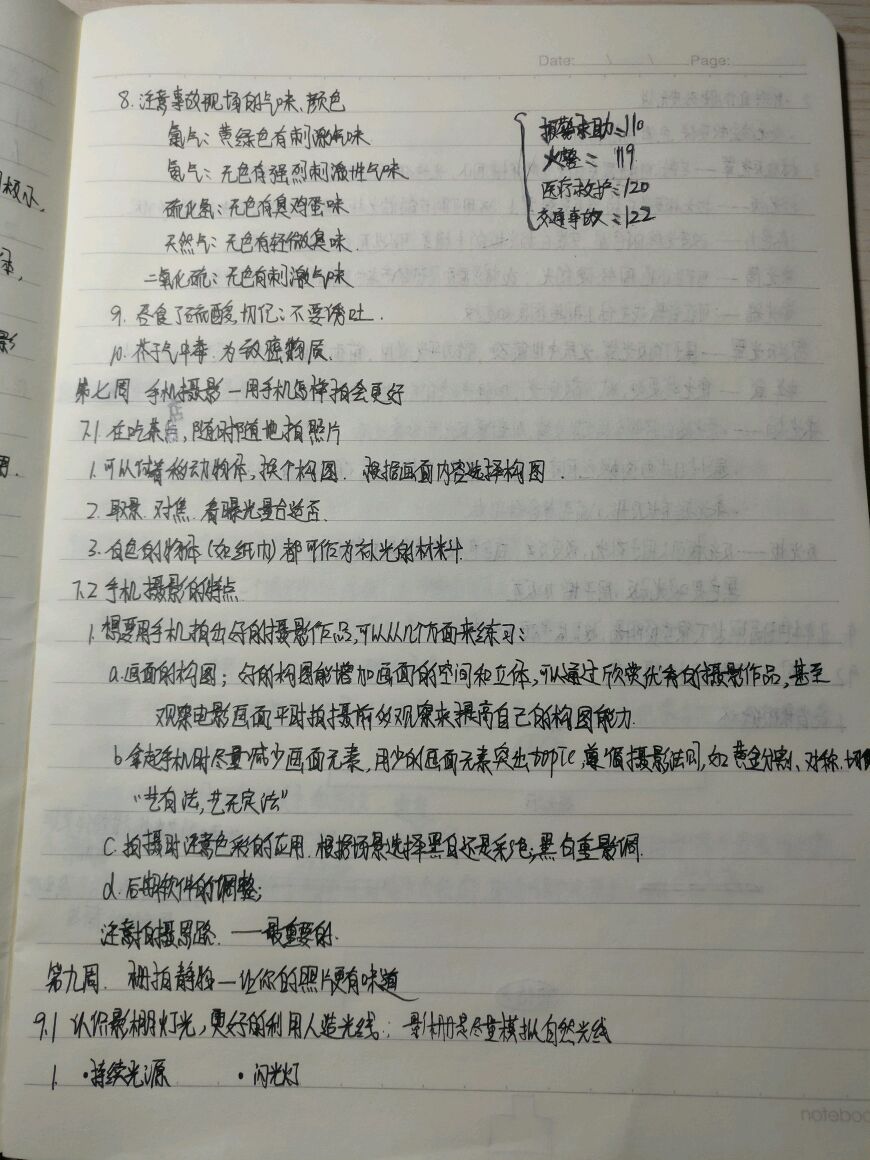 Date: \ \ Page:
8. 注意事故现场的气味、颜色
氯气：黄绿色有刺激气味
氨气：无色有强烈刺激性气味
硫化氢：无色有臭鸡蛋味
天然气：无色有轻微臭味
二氧化硫：无色有刺激气味
报警求助：110
火警： 119
医疗救护：120
交通事故：122
9. 吞食了硫酸，切记：不要诱吐．
10. 芥子气中毒．为致癌物质．
第七周 手机摄影—用手机怎样拍会更好
7.1 在吃茶店，随时随地拍照片
1. 可以试着移动物体，换个构图．根据画面内容选择构图．
2. 取景．对焦．看曝光量合适否．
3. 白色的物体（如纸巾）都可作为补光的材料
7.2 手机摄影的特点
1. 想要用手机拍出好的摄影作品，可以从几个方面来练习：
a. 画面的构图；好的构图能增加画面的空间和立体，可以通过欣赏优秀的摄影作品，甚至
观察电影画面平时拍摄前多观察来提高自己的构图能力．
b 拿起手机时尽量减少画面元素，用少的画面元素突出topic，遵循摄影法则，如黄金分割、对称、切
“艺有法，艺无定法”
c. 拍摄时注意色彩的应用．根据场景选择黑白还是彩色；黑白重影调．
d. 后期软件的调整；
注意拍摄思路．——最重要的．
第九周． 棚拍静物—让你的照片更有味道
9.1 认识影棚灯光，更好的利用人造光线；影棚是尽量模拟自然光线
1. ·持续光源 ·闪光灯